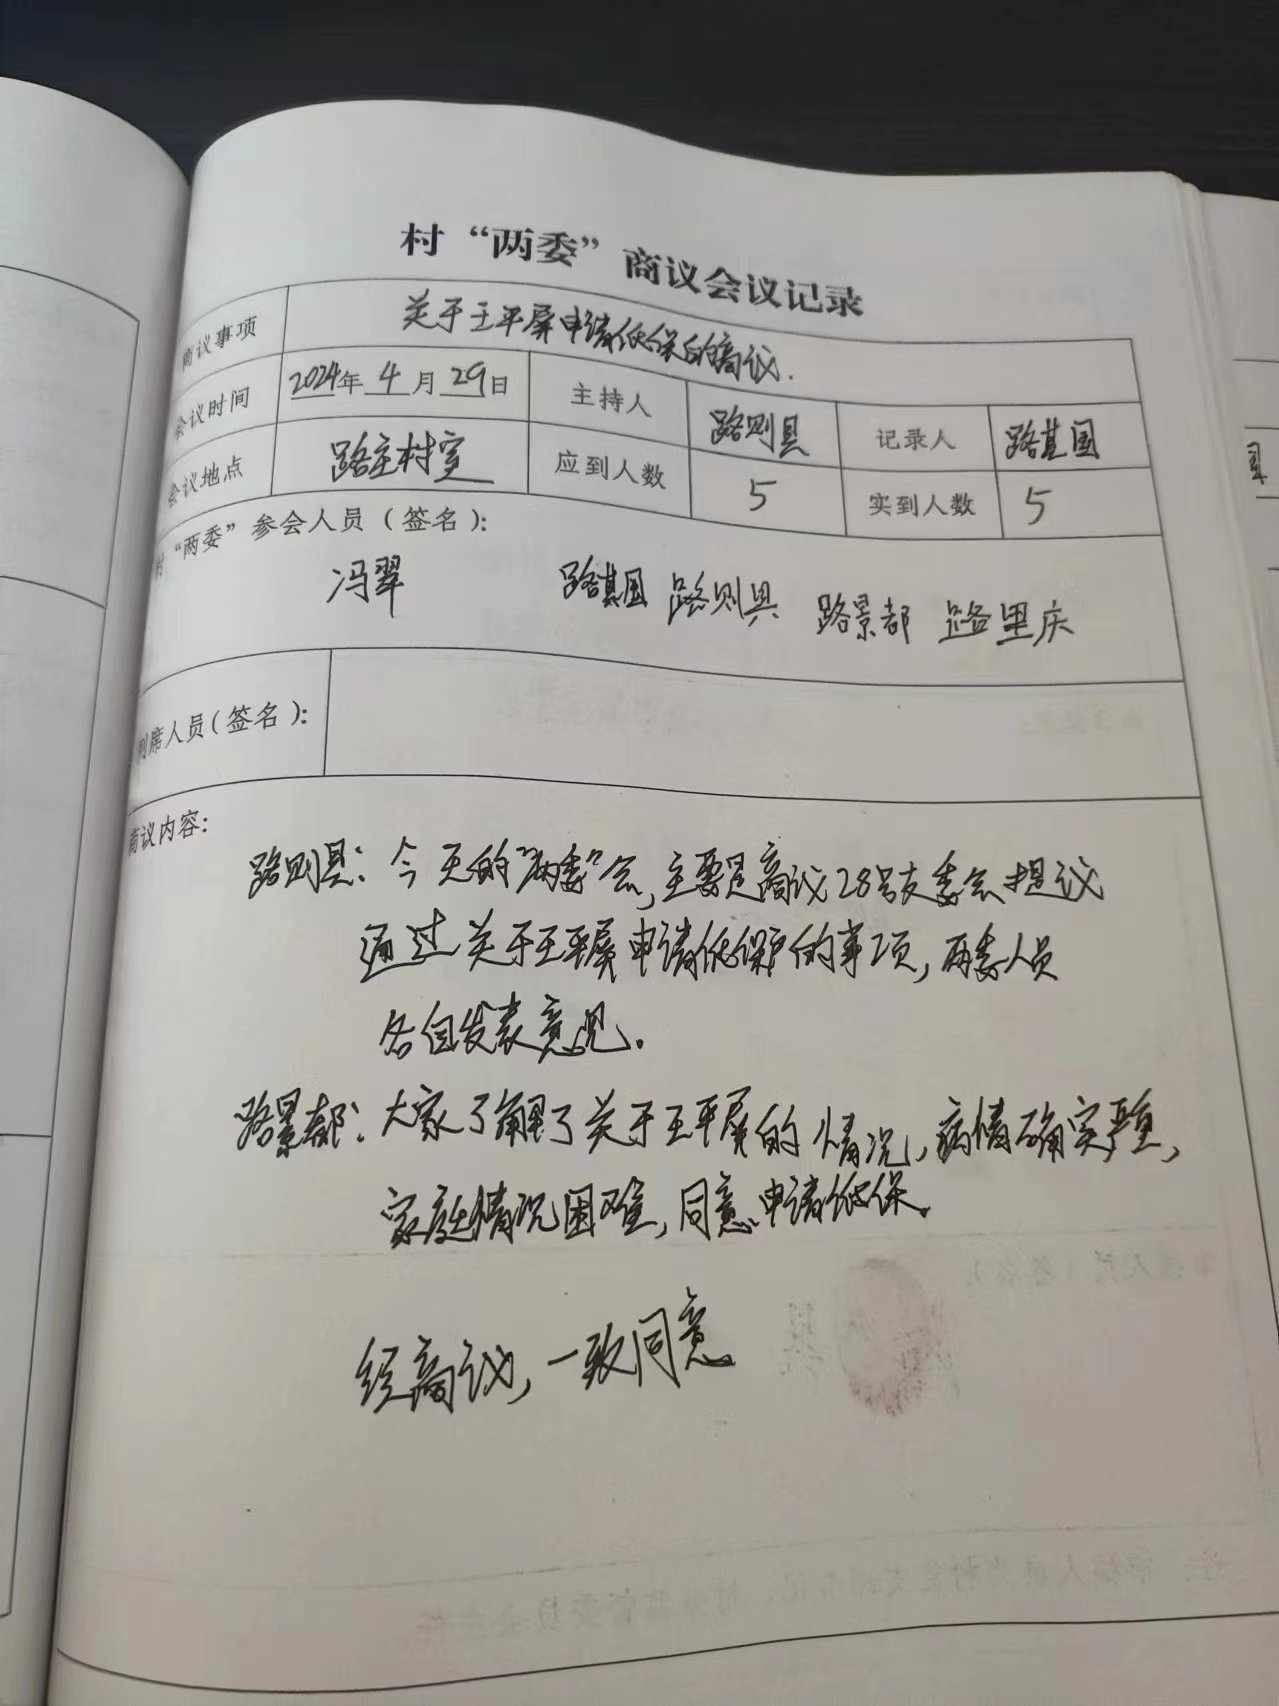 村“两委”商议会议记录
商议事项 关于王平屏申请低保的商议.
会议时间 2024年4月29日 主持人 路则县 记录人 路其国
会议地点 路庄村室 应到人数 5 实到人数 5
村“两委”参会人员（签名）：
冯翠 路其国 路则具 路景都 路里庆
列席人员（签名）：
商议内容：
路则县：今天的“两委”会，主要是商议28号支委会提议
通过关于王平屏申请低保户的事项，两委人员
各自发表意见。
路景都：大家了解了关于王平屏的情况，病情确实严重，
家庭情况困难，同意申请低保。
经商议，一致同意